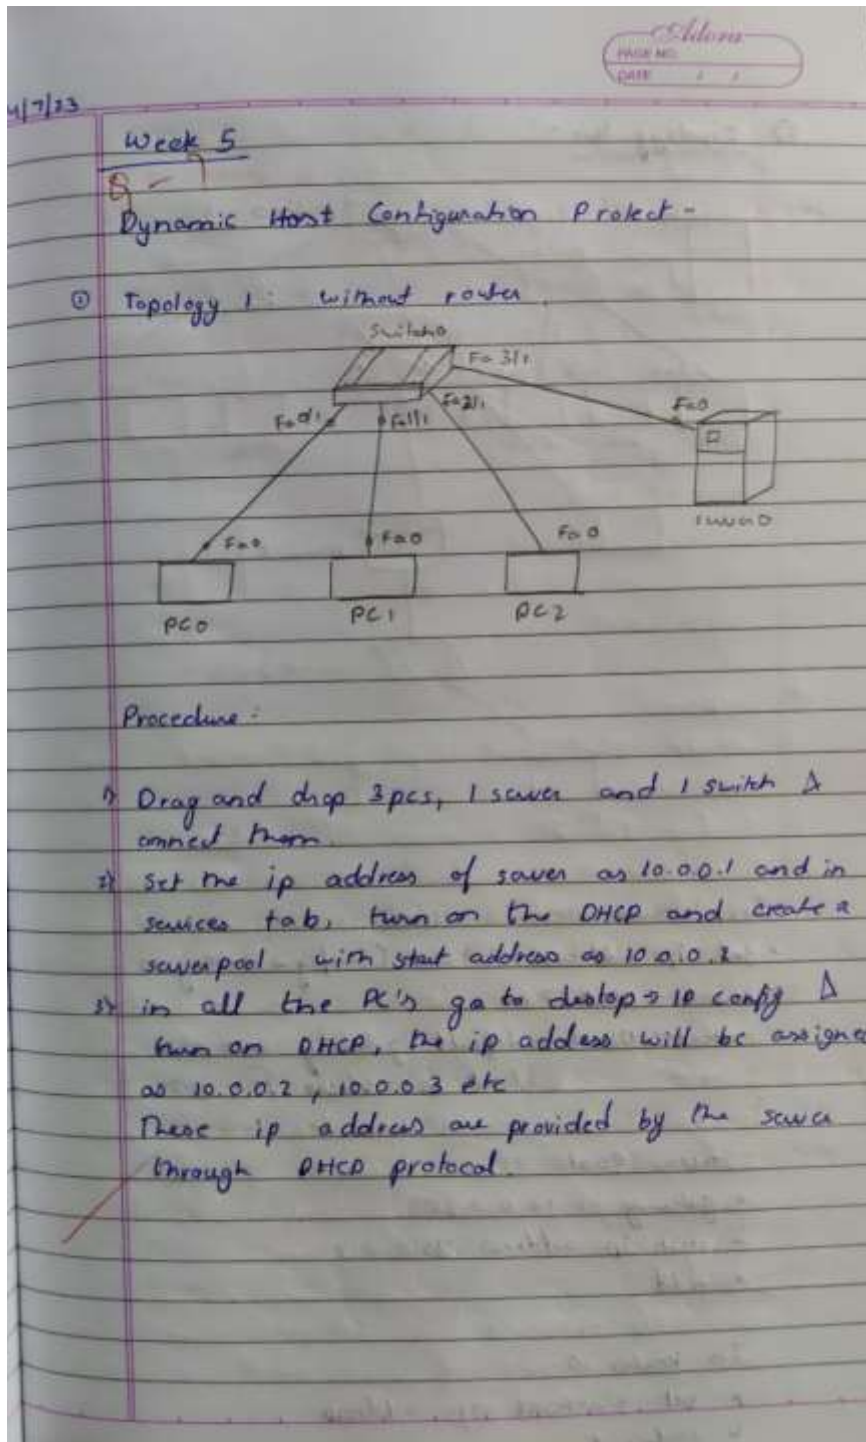 Adora
PAGE NO
DATE / /
4/7/23
Week 5
Dynamic Host Configuration Protect -
① Topology 1: without router.
Switch0
Fa 3/1
Fa0/1 Fa1/1 Fa2/1 Fa0
Server0
Fa0 Fa0 Fa0
PC0 PC1 PC2
Procedure:
1) Drag and drop 3pcs, 1 server and 1 switch &
connect them.
2) Set the ip address of server as 10.0.0.1 and in
services tab, turn on the DHCP and create a
serverpool with start address as 10.0.0.2
3) in all the PC's go to destop → IP config &
turn on DHCP, the ip address will be assigne
as 10.0.0.2, 10.0.0.3 etc
These ip address are provided by the server
through DHCP protocal.